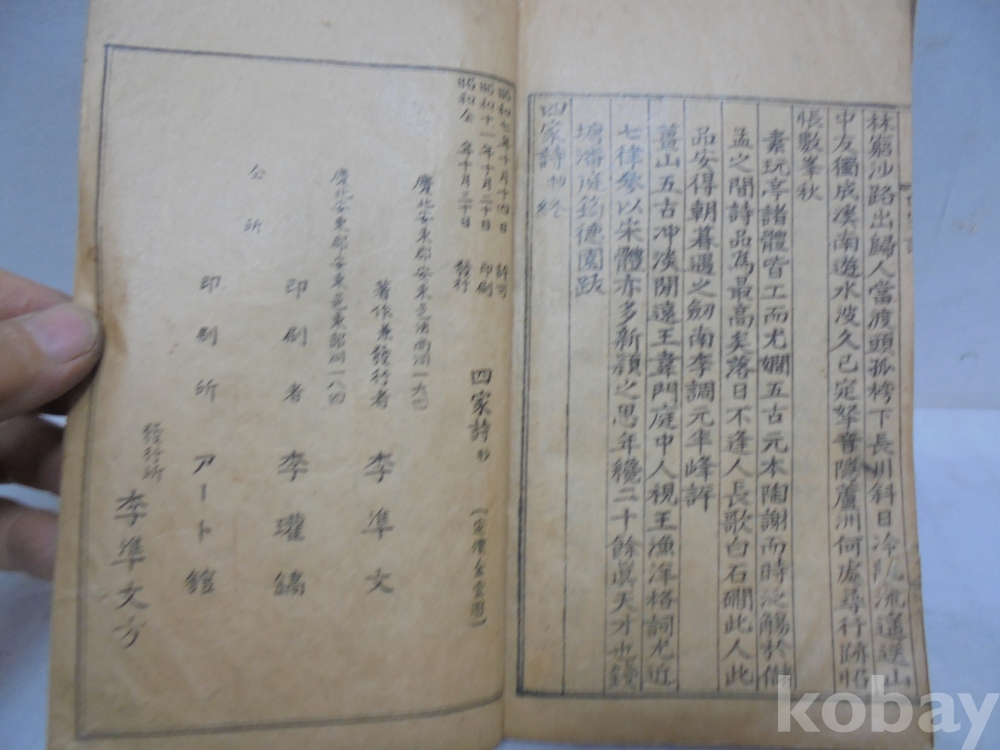 林窮沙路出歸人當渡頭孤桍下長川斜日冷阮流遥送山
中友獨成溪南遊水波久已定孥音隱蘆洲何處尋行跡怊
悵數峯秋
素玩亭諸體皆工而尤嫺五古元本陶謝而時泛觴於儲
孟之間詩品爲最高矣落日不逢人長歌白石磵此人此
品安得朝暮遇之劒南李調元雨峰評
薑山五古冲淡閒遠王韋門庭中人視王漁洋格詞尤近
七律參以宋體亦多新穎之思年纔二十餘眞天才也錢
塘潘庭筠德園跋
四家詩抄終
昭和七年十月十四日 許可
昭和十一年十月二十日 印刷
昭和仝 年十月三十日 發行
四家詩抄
【定價金壹圓】
慶北安東郡安東邑
著作兼發行者 李準文
慶北安東郡安東邑東部洞一八四
印刷者 李瓘鎬
仝所
印刷所 アート舘
發行所 李準文方
kobay